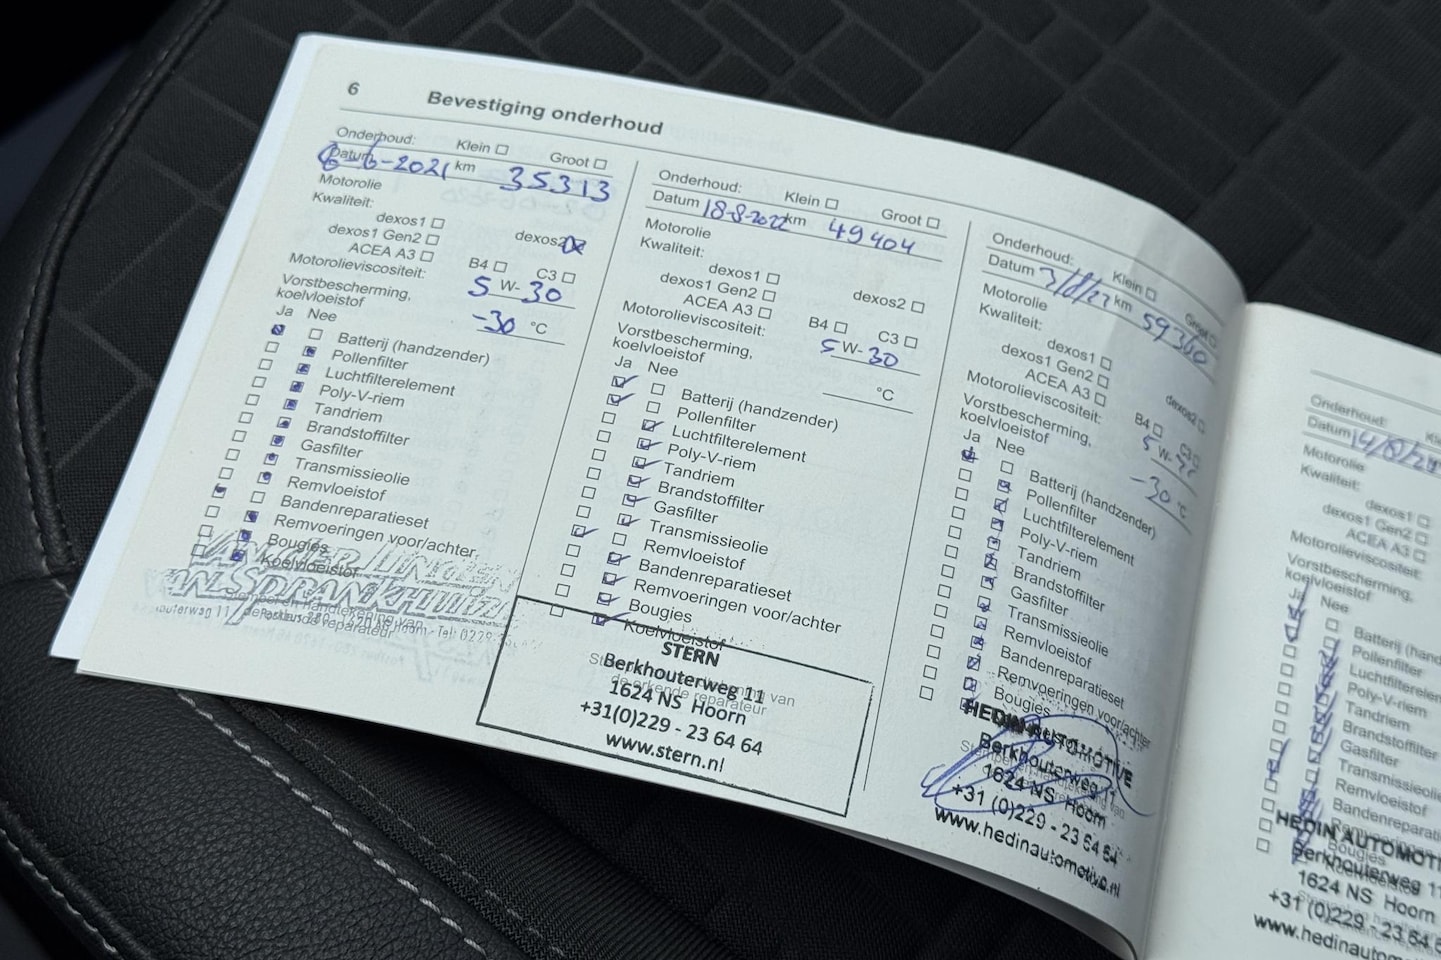 6 Bevestiging onderhoud
Onderhoud: Klein Groot
Datum 6-6-2021 km 35313
Motorolie
Kwaliteit:
dexos1
dexos1 Gen2 dexos2
ACEA A3 B4 C3
Motorolieviscositeit: 5 W- 30
Vorstbescherming,
koelvloeistof -30 °C
Ja Nee
Batterij (handzender)
Pollenfilter
Luchtfilterelement
Poly-V-riem
Tandriem
Brandstoffilter
Gasfilter
Transmissieolie
Remvloeistof
Bandenreparatieset
Remvoeringen voor/achter
Bougies
Koelvloeistof
VAN DER LINDEN
VAN SPRANKHUIZEN
Onderhoud: Klein Groot
Datum 18-8-2022 km 49404
Motorolie
Kwaliteit:
dexos1
dexos1 Gen2 dexos2
ACEA A3 B4 C3
Motorolieviscositeit: 5 W- 30
Vorstbescherming,
koelvloeistof °C
Ja Nee
Batterij (handzender)
Pollenfilter
Luchtfilterelement
Poly-V-riem
Tandriem
Brandstoffilter
Gasfilter
Transmissieolie
Remvloeistof
Bandenreparatieset
Remvoeringen voor/achter
Bougies
Koelvloeistof
STERN
Berkhouterweg 11
1624 NS Hoorn
+31(0)229 - 23 64 64
www.stern.nl
Onderhoud: Klein Groot
Datum km 59360
Motorolie
Kwaliteit:
dexos1
dexos1 Gen2 dexos2
ACEA A3 B4 C3
Motorolieviscositeit: 5 W-
Vorstbescherming,
koelvloeistof -30 °C
Ja Nee
Batterij (handzender)
Pollenfilter
Luchtfilterelement
Poly-V-riem
Tandriem
Brandstoffilter
Gasfilter
Transmissieolie
Remvloeistof
Bandenreparatieset
Remvoeringen voor/achter
Bougies
HEDIN AUTOMOTIVE
Berkhouterweg 11
1624 NS Hoorn
+31 (0)229 - 23 64 64
www.hedinautomotive.nl
Onderhoud:
Datum
Motorolie
Kwaliteit:
dexos1
dexos1 Gen2
ACEA A3
Motorolieviscositeit:
Vorstbescherming,
koelvloeistof
Ja Nee
Batterij (hand
Pollenfilter
Luchtfilterelemen
Poly-V-riem
Tandriem
Brandstoffilter
Gasfilter
Transmissieolie
Remvloeistof
Bandenreparati
HEDIN AUTOMOTI
Berkhouterweg 11
1624 NS Hoorn
+31 (0)229 - 23 64 6
www.hedinautom